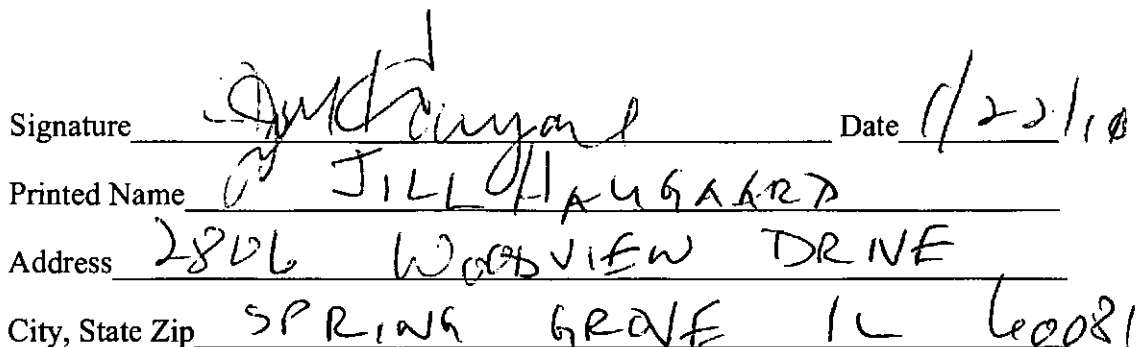 Signature Jill Haugaard Date 1/22/10
Printed Name JILL HAUGAARD
Address 2806 WOODVIEW DRIVE
City, State Zip SPRING GROVE IL 60081